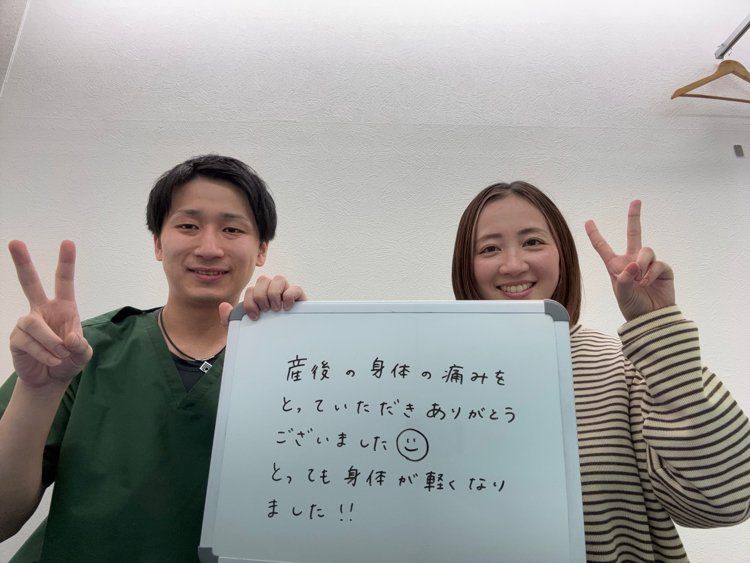 産後の身体の痛みを
とっていただきありがとう
ございました☺
とっても身体が軽くなり
ました!!